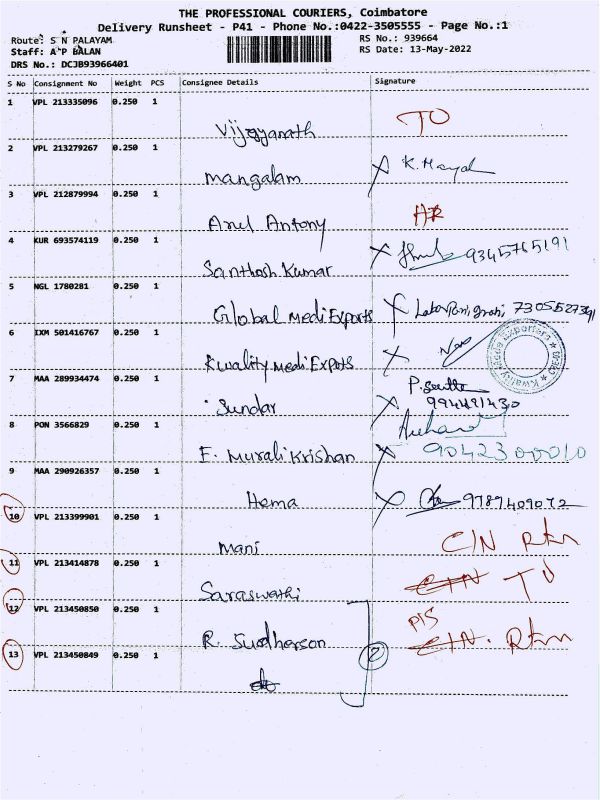 THE PROFESSIONAL COURIERS, Coimbatore
Delivery Runsheet - P41 - Phone No.:0422-3505555 - Page No.:1
Route: S N PALAYAM RS No.: 939664
Staff: A P BALAN RS Date: 13-May-2022
DRS No.: DCJB93966401
S No Consignment No Weight PCS Consignee Details Signature
1 VPL 213335096 0.250 1 TO
2 VPL 213279267 0.250 1 Mangalam
3 VPL 212879994 0.250 1 Arul Antony
4 KUR 693574119 0.250 1 Santhosh Kumar 9345765191
5 NGL 1780281 0.250 1 Global Medi Exports
6 IXM 501416767 0.250 1 Kwality Medi Expots
7 MAA 289934474 0.250 1 Sundar
8 PON 3566829 0.250 1 E. Murali Krishan 9042300010
9 MAA 290926357 0.250 1 Hema 9789409072
10 VPL 213399901 0.250 1 Mani C/N Rtn
11 VPL 213414878 0.250 1 Saraswathi
12 VPL 213450850 0.250 1 R. Sudherson
13 VPL 213450849 0.250 1 do 2